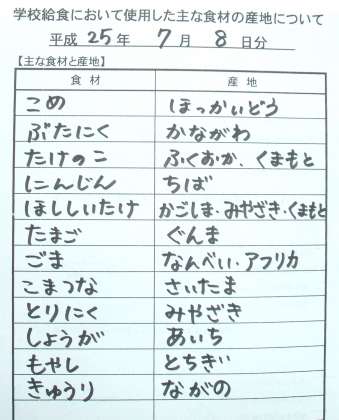 学校給食において使用した主な食材の産地について
平成 25 年 7 月 8 日分
【主な食材と産地】
食材 産地
こめ ほっかいどう
ぶたにく かながわ
たけのこ ふくおか、くまもと
にんじん ちば
ほししいたけ かごしま・みやざき・くまもと
たまご ぐんま
ごま なんべい・アフリカ
こまつな さいたま
とりにく みやざき
しょうが あいち
もやし とちぎ
きゅうり ながの